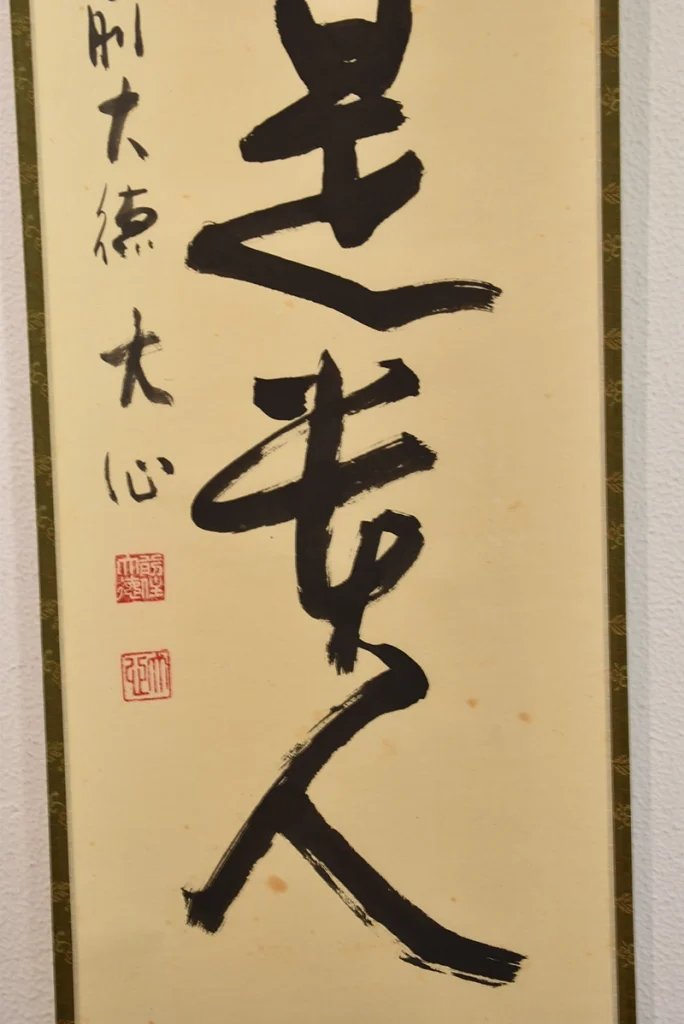 是貴人
前大徳 大心